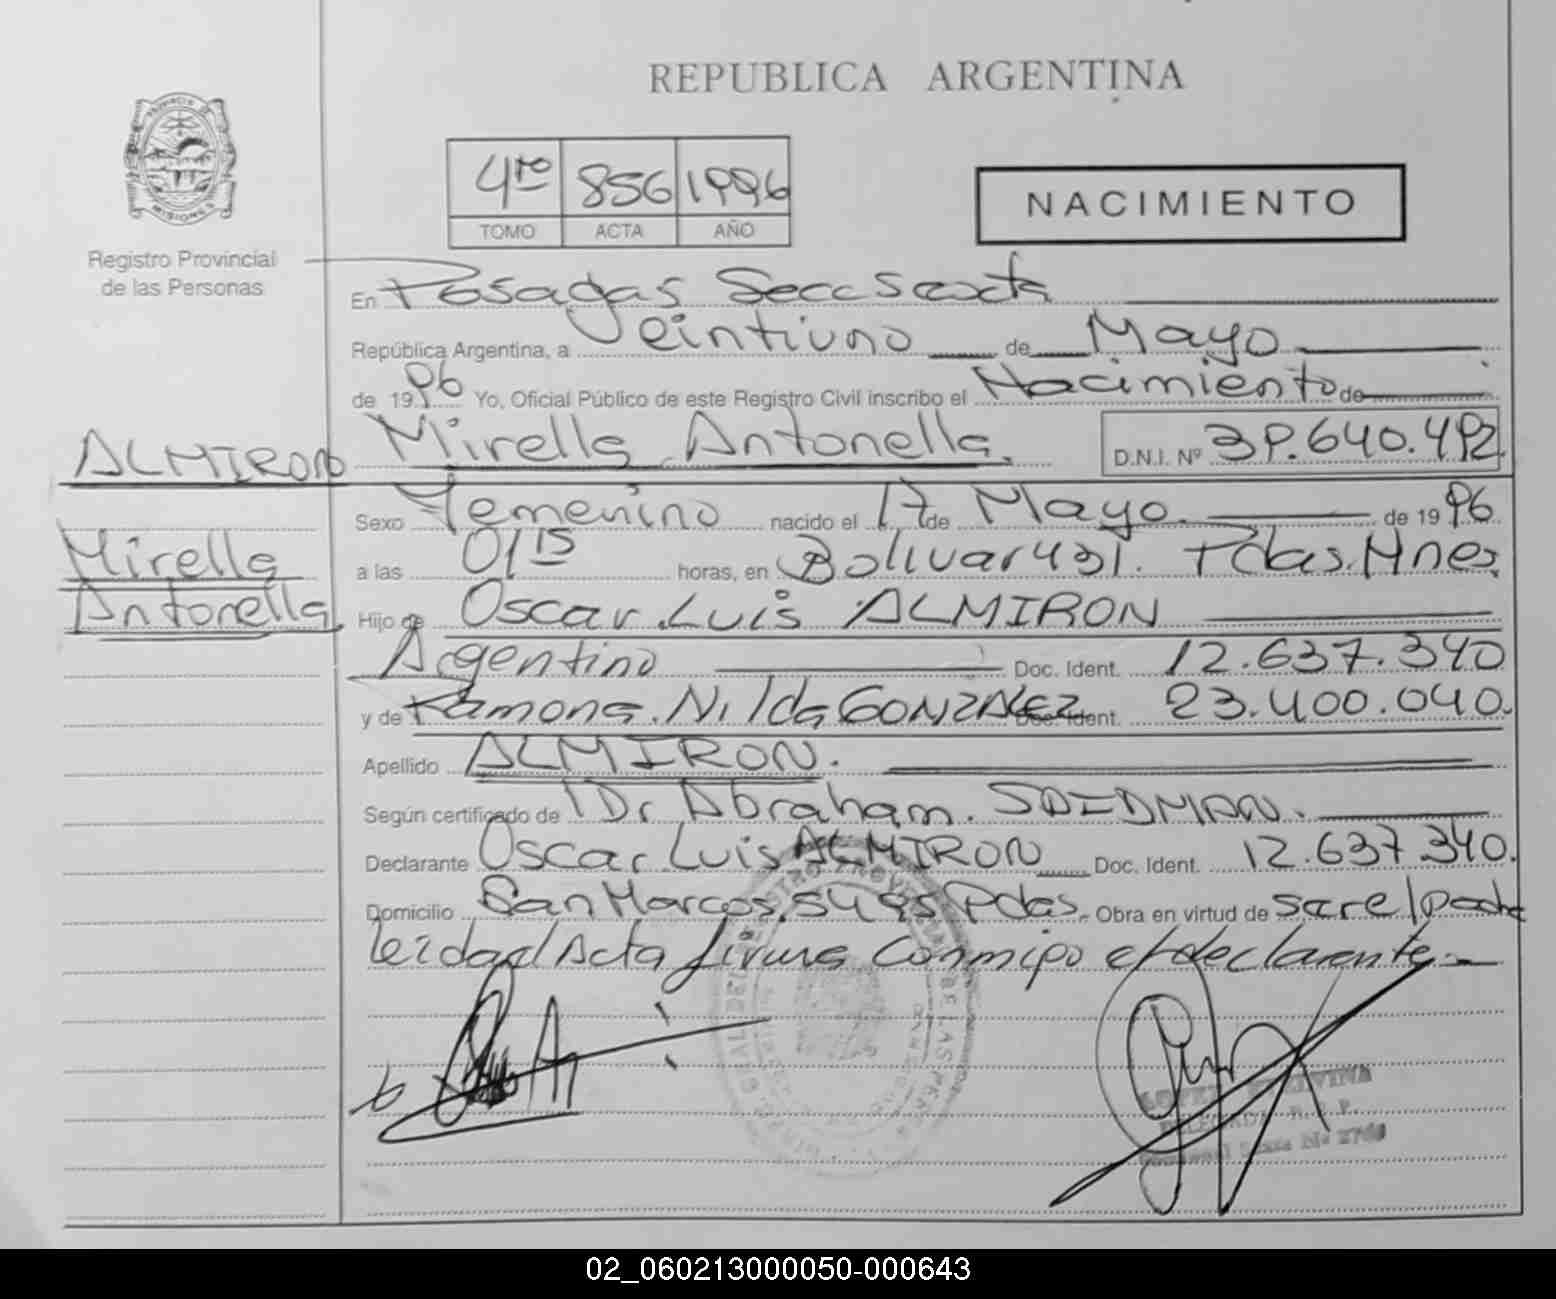 REPUBLICA ARGENTINA
PROVINCIA DE
MISIONES
Registro Provincial
de las Personas
4to 856 1996
TOMO ACTA AÑO
NACIMIENTO
En Posadas Secc Sexta
República Argentina, a Veintiuno de Mayo
de 1996 Yo, Oficial Público de este Registro Civil inscribo el Nacimiento de
ALMIRON Mirella Antonella. D.N.I. Nº 39.640.492
Sexo Femenino nacido el 17 de Mayo. de 1996
Mirella a las 01 15 horas, en Bolivar 431. Pdas. Mnes.
Antonella. Hijo de Oscar Luis ALMIRON
Argentino Doc. Ident. 12.637.340
y de Ramona Nilda GONZALEZ Doc. Ident. 23.400.040.
Apellido ALMIRON.
Según certificado de Dr Abraham.
Declarante Oscar Luis ALMIRON Doc. Ident. 12.637.340.
Domicilio San Marcos 5495 Pdas. Obra en virtud de ser el padre
leida el Acta firma conmigo el declarante.-
LOPEZ
DELEGADA R.P.P.
02_060213000050-000643